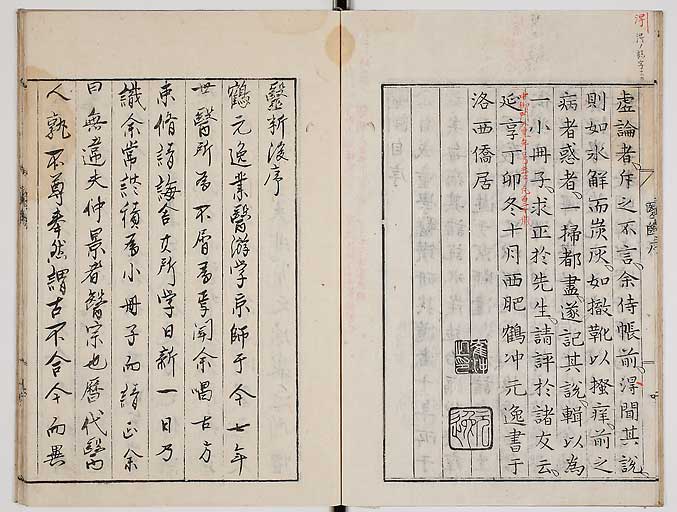 淂
虚論者、斥之不言、余侍帳前、淂聞其說、
則如氷解而炭灰、如撤靴以搔痒、前之
病者惑者、一掃都盡、遂記其說、輯以為
一小冊子、求正於先生、請評於諸友云、
延享丁卯冬十月西肥鶴冲元逸書于
洛西僑居
元逸
醫断後序
鶴元逸業醫游学京師于今七年
世醫所為不屑為事聞余唱古方
束脩請誨舍女所学日新一日乃
識余常談積為小冊子而請正余
曰無違夫仲景者醫宗也曆代醫
人孰不尊奉然謂古不合今而異